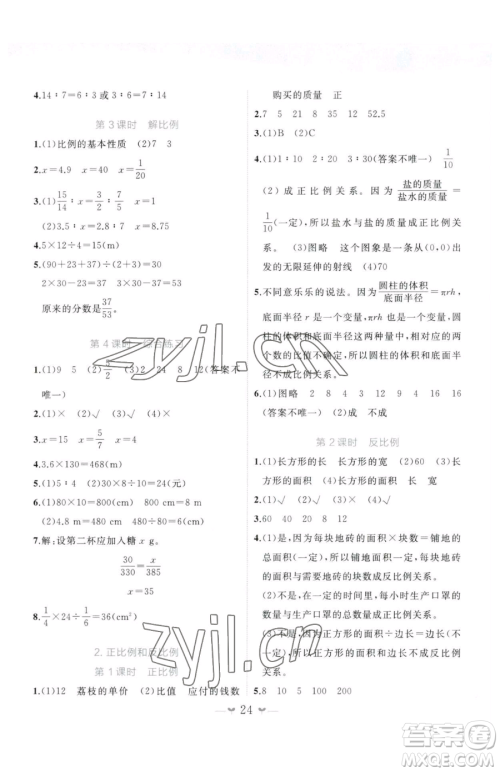 4.14∶7=6∶3或3∶6=7∶14
第3课时 解比例
1.(1)比例的基本性质 (2)7 3
2.x=4.9 x=40 x=1/20
3.(1)15/14∶x=3/2∶7/5 x=1
(2)3.5∶x=2.8∶7 x=8.75
4.5×12÷4=15(m)
5.(90+23+37)÷(2+3)=30
2×30-23=37 3×30-37=53
原来的分数是37/53。
第4课时
1.(1)9 5 (2)3/2 (3)2 24 8 12(答案不
唯一)
2.(1)× (2)√ (3)√
3.x=15 x=5/7
4.3.6×130=468(m)
5.(1)5∶4 (2)30×8÷10=24(元)
6.(1)80×10=800(cm)
(2)4.8 m=480 cm 480÷10=48(cm)
7.解:设第二杯应加入糖x g。
30/330=x/385
x=35
8.1/4×24÷1/6=36(cm²)
2.正比例和反比例
第1课时 正比例
1.(1)12 荔枝的单价 (2)比值 应付的钱数
购买的质量 正
2.7 5 21 8 35 12 52.5
3.(1)B (2)C
4.(1)1∶10 2∶20 3∶30(答案不唯一) 1/10
(2)成正比例关系。因为盐的质量/盐水的质量=
1/10(一定),所以盐水与盐的质量成正比例关系。
(3)图略 这个图象是一条从(0,0)出发
的无限延伸的射线 (4)70
5.不同意乐乐的说法。因为圆柱的体积/底面半径=πrh,
底面半径r是一个变量,也就是πrh不一定,圆
柱的体积与底面半径这两种量中,相对应的两
个数的比值不确定,所以圆柱的体积与底面半
径不成正比例关系。
6.(1)图略 1 2 3 4 8 12 1 4 9 16
(答案不唯一) (2)成 不成
第2课时 反比例
1.(1)长方形的长 长方形的宽 (2)60 (3)长
方形的面积 长 宽
2.(1)√ (2)× (3)√ (4)√
3.60 40 20 8 12
4.(1)是。因为每块地砖的面积×块数=铺地的
总面积(一定),所以铺地的总面积一定,每块地砖
的面积与需要地砖的块数成反比例关系。
(2)不是。在一定的时间里,每小时生产口罩的
个数与生产口罩的总数量成正比例关系。
(3)不是。因为正方形的面积÷边长=边长(不一
定),所以正方形的面积与边长不成比例关系。
5.8 10 100 200
24
zyjl.cn
zyjl.cn